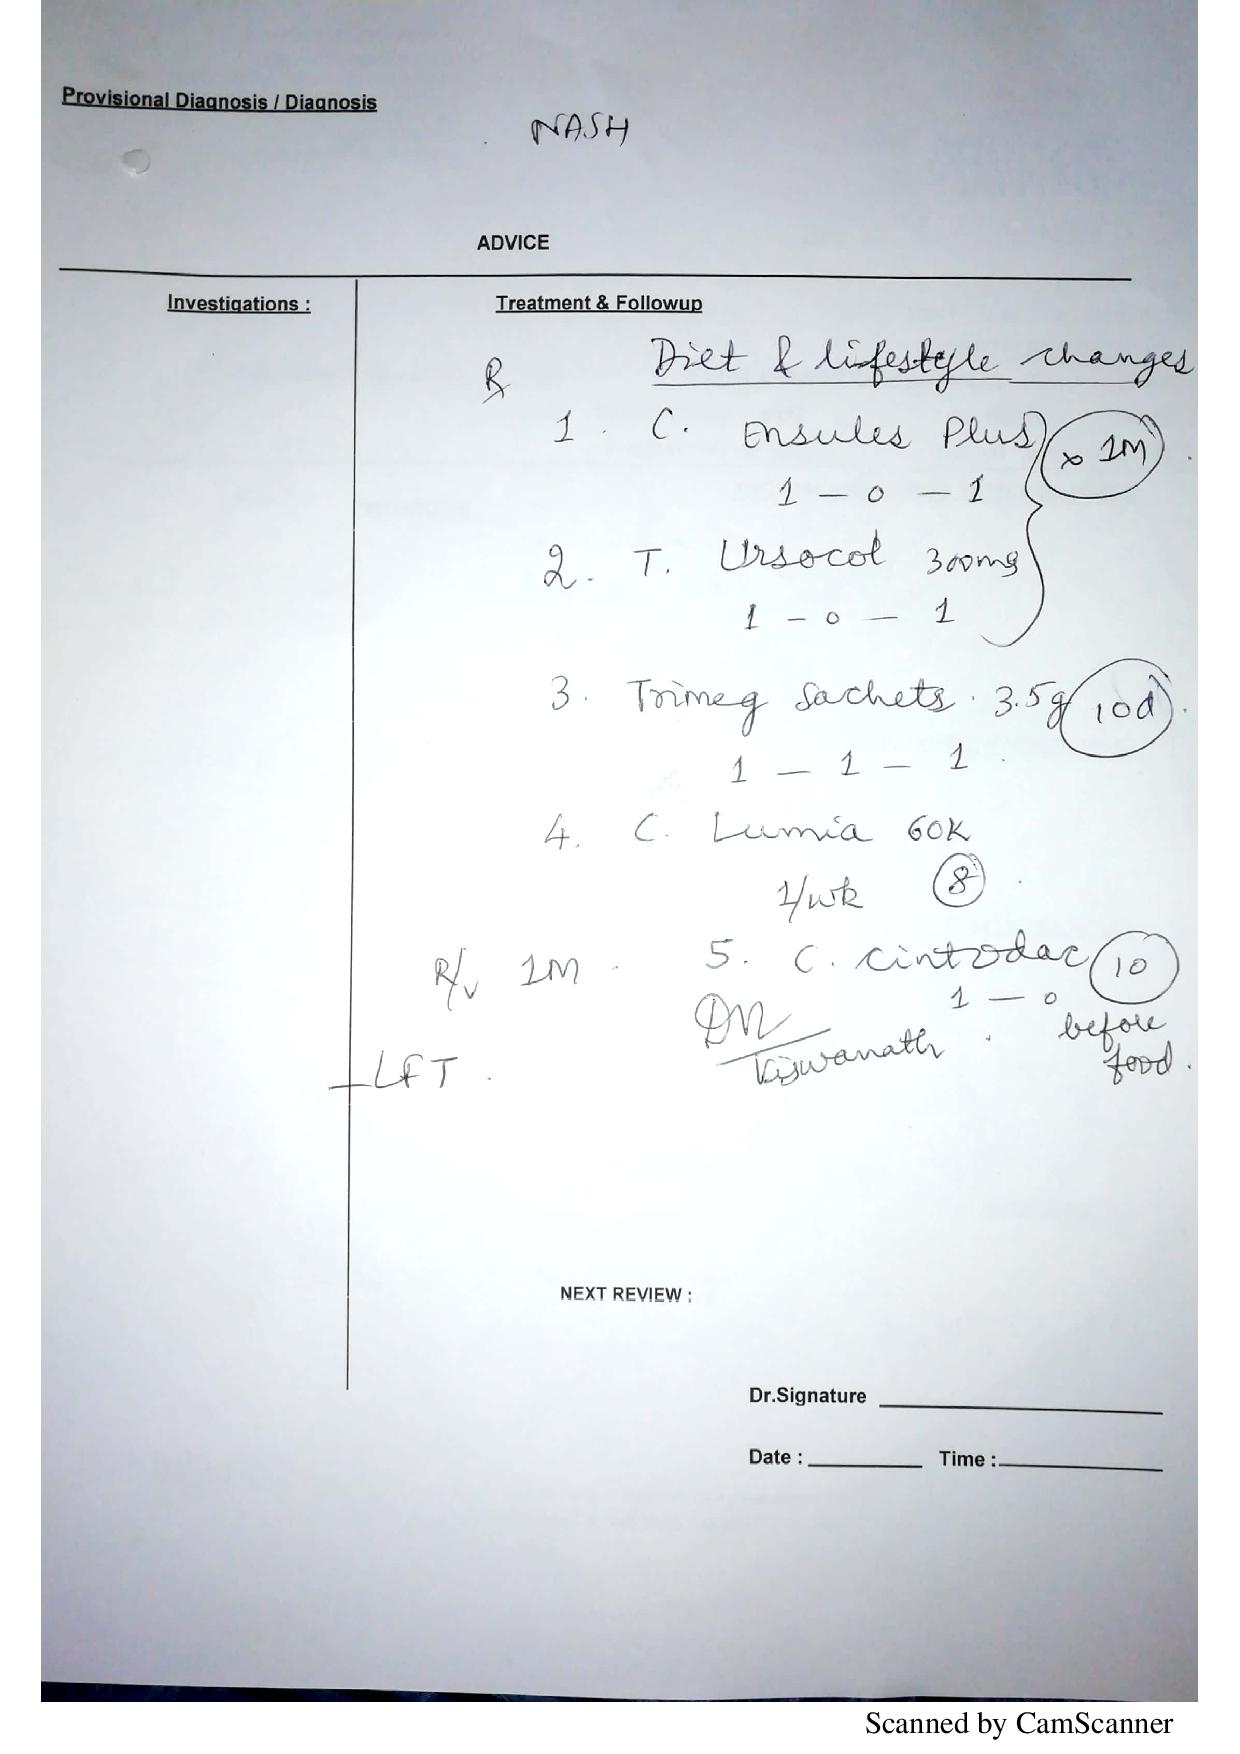 Provisional Diagnosis / Diagnosis
NASH
ADVICE
Investigations :
Treatment & Followup
Rx Diet & lifestyle changes
1. C. Ensules Plus x 1M
1 - 0 - 1
2. T. Ursocol 300mg
1 - 0 - 1
3. Trimeg sachets. 3.5g 10d
1 - 1 - 1
4. C. Lumia 60K
1/wk 8
5. C. cintodac 10
R/v 1M.
1 - 0
before
food.
Viswanath
LFT.
NEXT REVIEW :
Dr.Signature
Date : Time :
Scanned by CamScanner